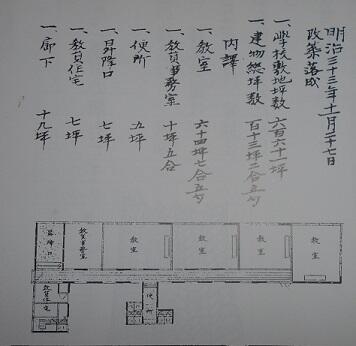 明治三十三年十一月二十七日
改築落成
一、学校敷地坪数 六百六十一坪
一、建物総坪数 百十三坪二合五勺
内譯
一、教室 六十四坪七合五勺
一、教員事務室 十坪五合
一、便所 五坪
一、昇降口 七坪
一、教員住宅 七坪
一、廊下 十九坪
昇降口
教員事務室
教室
教室
教室
教室
教員住宅
便所